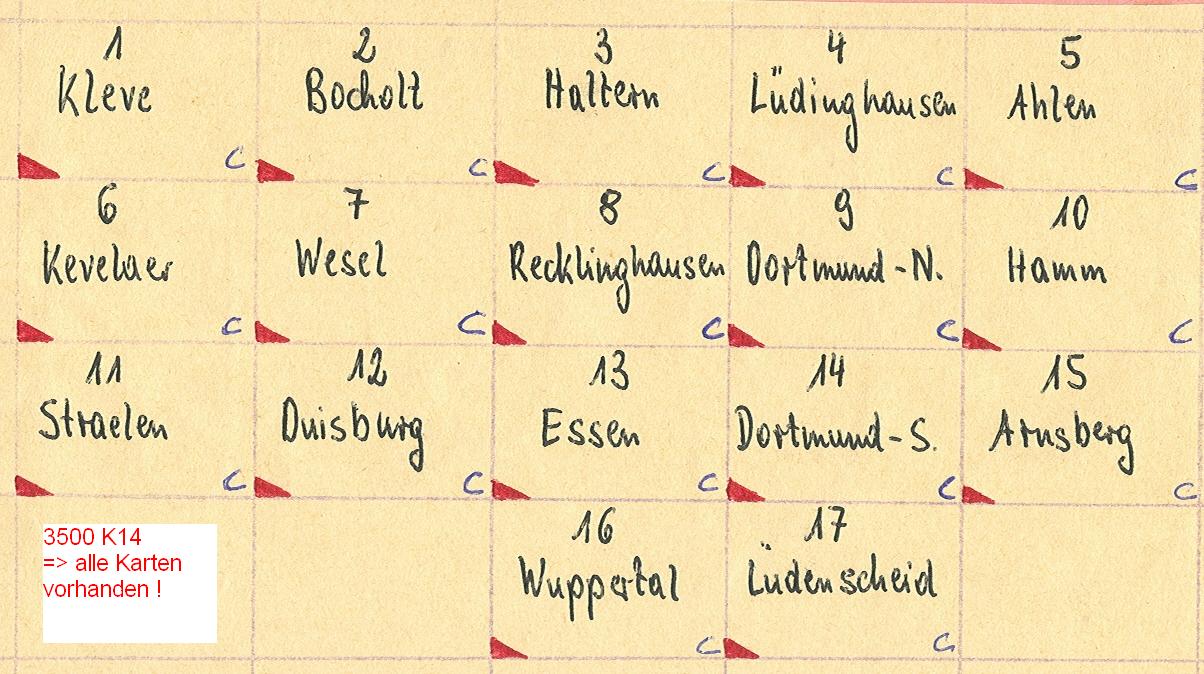 1 2 3 4 5
Kleve Bocholt Haltern Lüdinghausen Ahlen
C C C C C
6 7 8 9 10
Kevelaer Wesel Recklinghausen Dortmund-N. Hamm
C C C C C
11 12 13 14 15
Straelen Duisburg Essen Dortmund-S. Arnsberg
C C C C C
16 17
Wuppertal Lüdenscheid
C C
3500 K14
=> alle Karten
vorhanden !